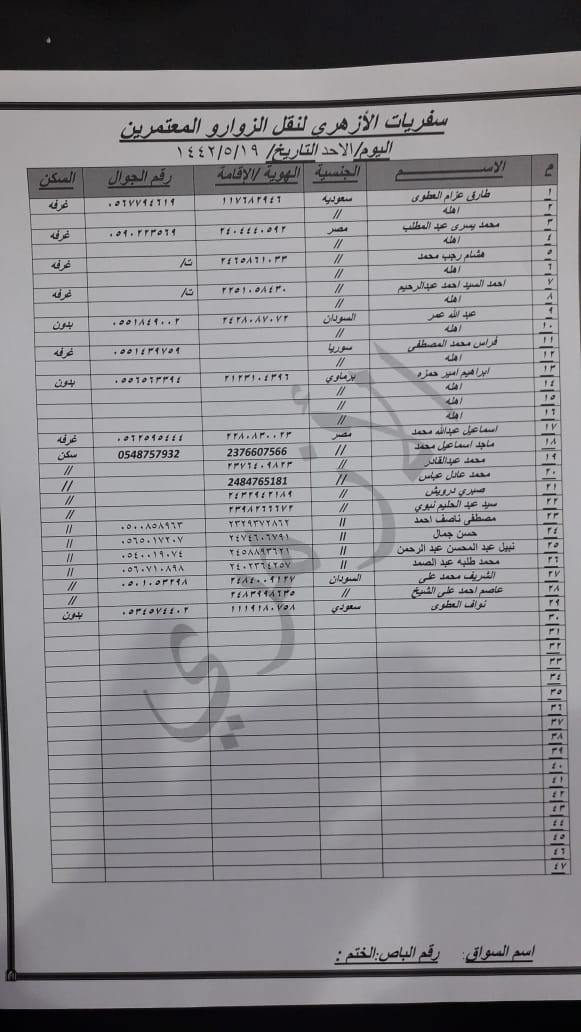 سفريات الأزهري لنقل الزوار و المعتمرين
اليوم/الاحد التاريخ/ ١٤٤٢/٥/١٩
م الاســـــم الجنسية الهوية/الإقامة رقم الجوال السكن
١ طارق عزام العطوى سعوديه ١١٧٦٨٢٩٤٦ ٠٥٦٧٧٩٤٦١٩ غرفه
٢ اهله //
٣ محمد يسرى عبد المطلب مصر ٢٤٠٤٤٤٠٥٩٢ ٠٥٩٠٢٢٣٥٦٩ غرفه
٤ اهله //
٥ هشام رجب محمد // ٢٤٦٥٨٦١٠٣٣ ت/ غرفه
٦ اهله //
٧ احمد السيد احمد عبدالرحيم // ٢٢٥١٠٥٨٤٣٠ ت/ غرفه
٨ اهله //
٩ عبد الله عمر السودان ٢٤٢٨٠٨٧٠٧٢ ٠٥٥١٨٤٩٠٠٢ بدون
١٠ اهله //
١١ فراس محمد المصطفى سوريا ٠٥٥١٤٣٩٧٥٩ غرفه
١٢ اهله //
١٣ ابراهيم امير حمزه برماوي ٢١٢٣١٠٤٣٩٦ ٠٥٥٦٥٦٣٣٩٤ بدون
١٤ اهله //
١٥ اهله //
١٦ اهله //
١٧ اسماعيل عبدالله محمد مصر ٢٢٨٠٨٣٠٠٢٣ ٠٥٦٢٥٩٥٤٤٤ غرفه
١٨ ماجد اسماعيل محمد // 2376607566 0548757932 سكن
١٩ محمد عبدالقادر // ٢٣٧٦٤٠٩٨٢٣ //
٢٠ محمد عادل عباس // 2484765181 //
٢١ صبري درويش // ٢٤٣٢٩٤٢١٨٩ //
٢٢ سيد عبد الحليم نبوي // ٢٣٩٨٢٦٦٦٧٢ //
٢٣ مصطفى ناصف احمد // ٢٣٢٩٣٧٢٨٦٢ ٠٥٠٠٨٥٨٩٦٣ //
٢٤ حسن جمال // ٢٤٧٤٦٠٦٧٩١ ٠٥٦٥٠١٧٢٠٧ //
٢٥ نبيل عبد المحسن عبد الرحمن // ٢٤٥٨٨٩٣٦٢١ ٠٥٤٠٠١٩٠٧٤ //
٢٦ محمد طلبه عبد الصمد // ٢٤٠٢٣٦٤٢٥٧ ٠٥٦٠٧١٠٨٩٨ //
٢٧ الشريف محمد على السودان ٢٤٨٤٠٠٩١٢٧ ٠٥٠١٠٥٣٢٩٨ //
٢٨ عاصم احمد على الشيخ // ٢٤٨٣٩٩٨٦٣٥ //
٢٩ نواف العطوى سعودي ١١١٩١٨٠٧٥٨ ٠٥٣٤٥٧٤٤٠٢ بدون
٣٠
٣١
٣٢
٣٣
٣٤
٣٥
٣٦
٣٧
٣٨
٣٩
٤٠
٤١
٤٢
٤٣
٤٤
٤٥
٤٦
٤٧
الأزهري
اسم السواق: رقم الباص: الختم :